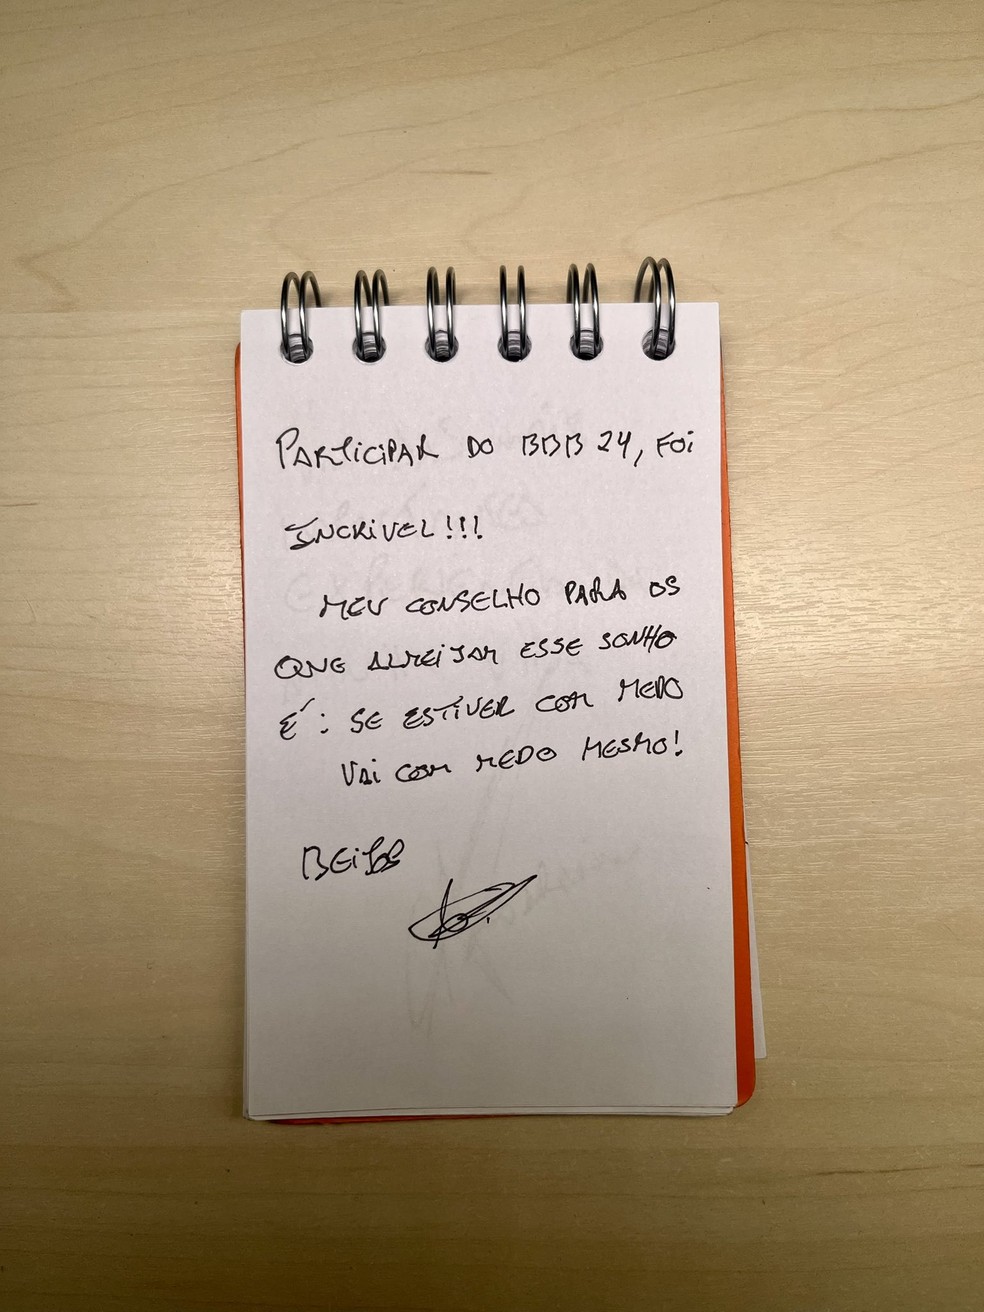 PARTICIPAR DO BBB 24, FOI
INCRIVEL!!!
MEU CONSELHO PARA OS
QUE ALMEIJAM ESSE SONHO
É: SE ESTIVER COM MEDO
VAI COM MEDO MESMO!
BEIJOS